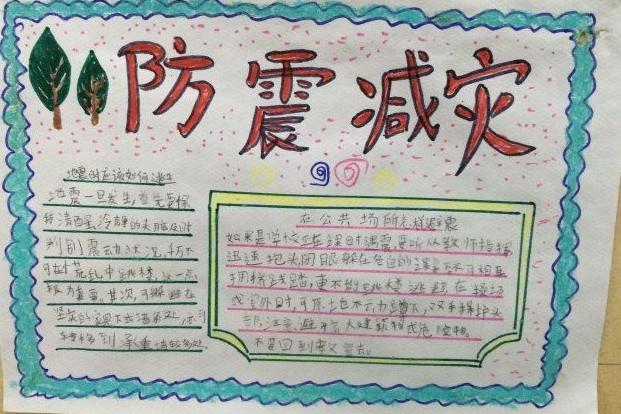 防震减灾
地震时应该如何逃生
地震一旦发生,首先要保
持清醒、冷静的头脑及时
判别震动状况,千万不
可在慌乱中跳楼,这一点
极为重要。其次,可躲避在
坚实的家具下或墙角处,亦可
转移到承重墙较多处
在公共场所怎样避震
如果是学校正在课时遇震要听从教师指挥
迅速抱头闭眼躲在各自的课桌下,不可相互
拥挤践踏,更不能跳楼逃跑,在操场
或室外时,可原地不动蹲下,双手保护头
部,注意避开高大建筑物或危险物,
不要回到教室去。